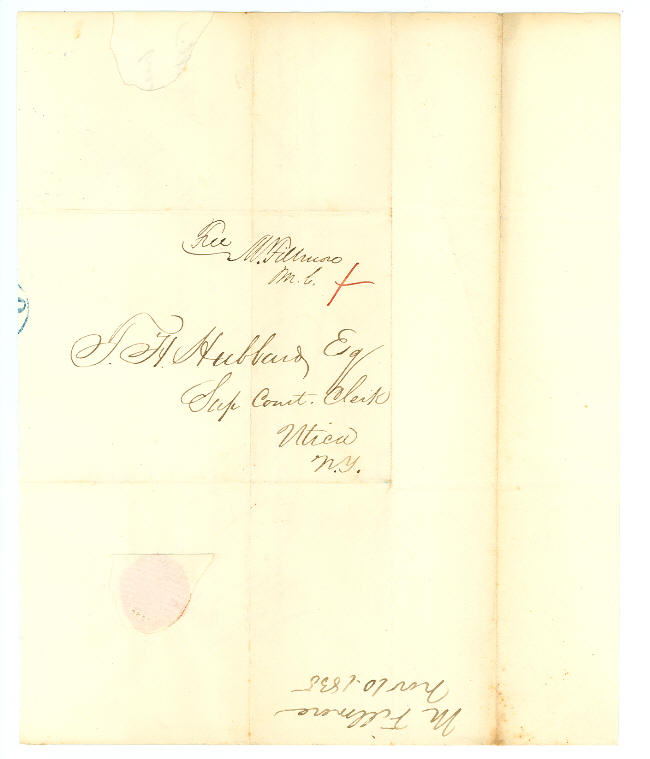 Free
M. Fillmore
M.C.
T. H. Hubbard Esq
Sup Court. Clerk
Utica
N.Y.
M Fillmore
Nov 10. 1838